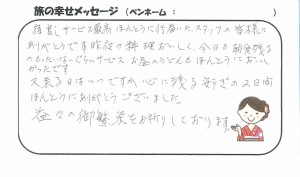 旅の幸せメッセージ（ペンネーム：　　　）
接客しサービス最高ほんとうに行届いたスタッフの皆様に
ありがとうです昨夜の料理おいしく、今日も朝食残すの
もったいないぐらいサービスお昼のうどんもほんとうにおいし
かったです
又来るはいのですが、心に残る安らぎの2日間
ほんとうにありがとうございました。
益々の御繁栄をお祈りしております